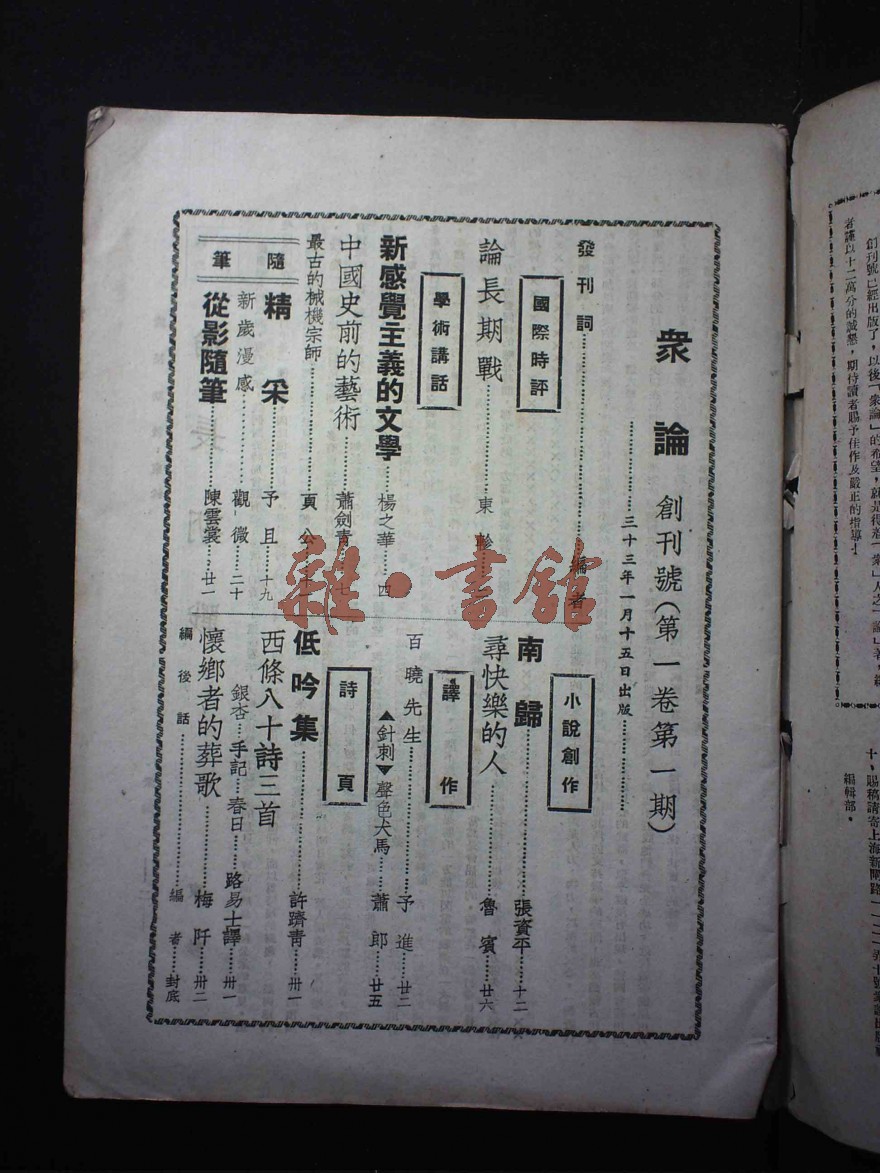 衆論 創刊號(第一卷第一期)
三十三年一月十五日出版
發刊詞 編者
國際時評
論長期戰 東
學術講話
新感覺主義的文學 楊之華 四
中國史前的藝術 蕭劍青 七
最古的械機宗師 頁公
隨筆
精采 予且 十九
新歲漫感 觀微 二十
從影隨筆 陳雲裳 廿一
小說創作
南歸 張資平 十二
尋快樂的人 魯賓 廿六
譯作
百曉先生 予進 廿二
▲針刺▼ 聲色犬馬 蕭郎 廿五
詩頁
低吟集 許躋青 卅一
西條八十詩三首
銀杏…手記…春日 路易士譯 卅一
懷鄉者的葬歌 梅阡 卅二
編後話 編者 封底
雜·書館
創刊號已經出版了,以後「衆論」的希望,就是得著「衆」人之「論」著,編
者謹以十二萬分的誠懇,期待讀者賜予佳作及嚴正的指導!
十、賜稿請寄上海新閘路
編輯部。